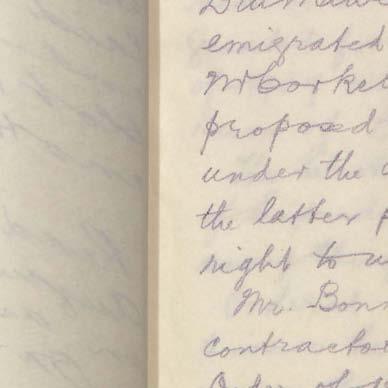 emigrated
McCorkel
proposed
under the
the latter
night to
Mr. Bonn
contractor
Order